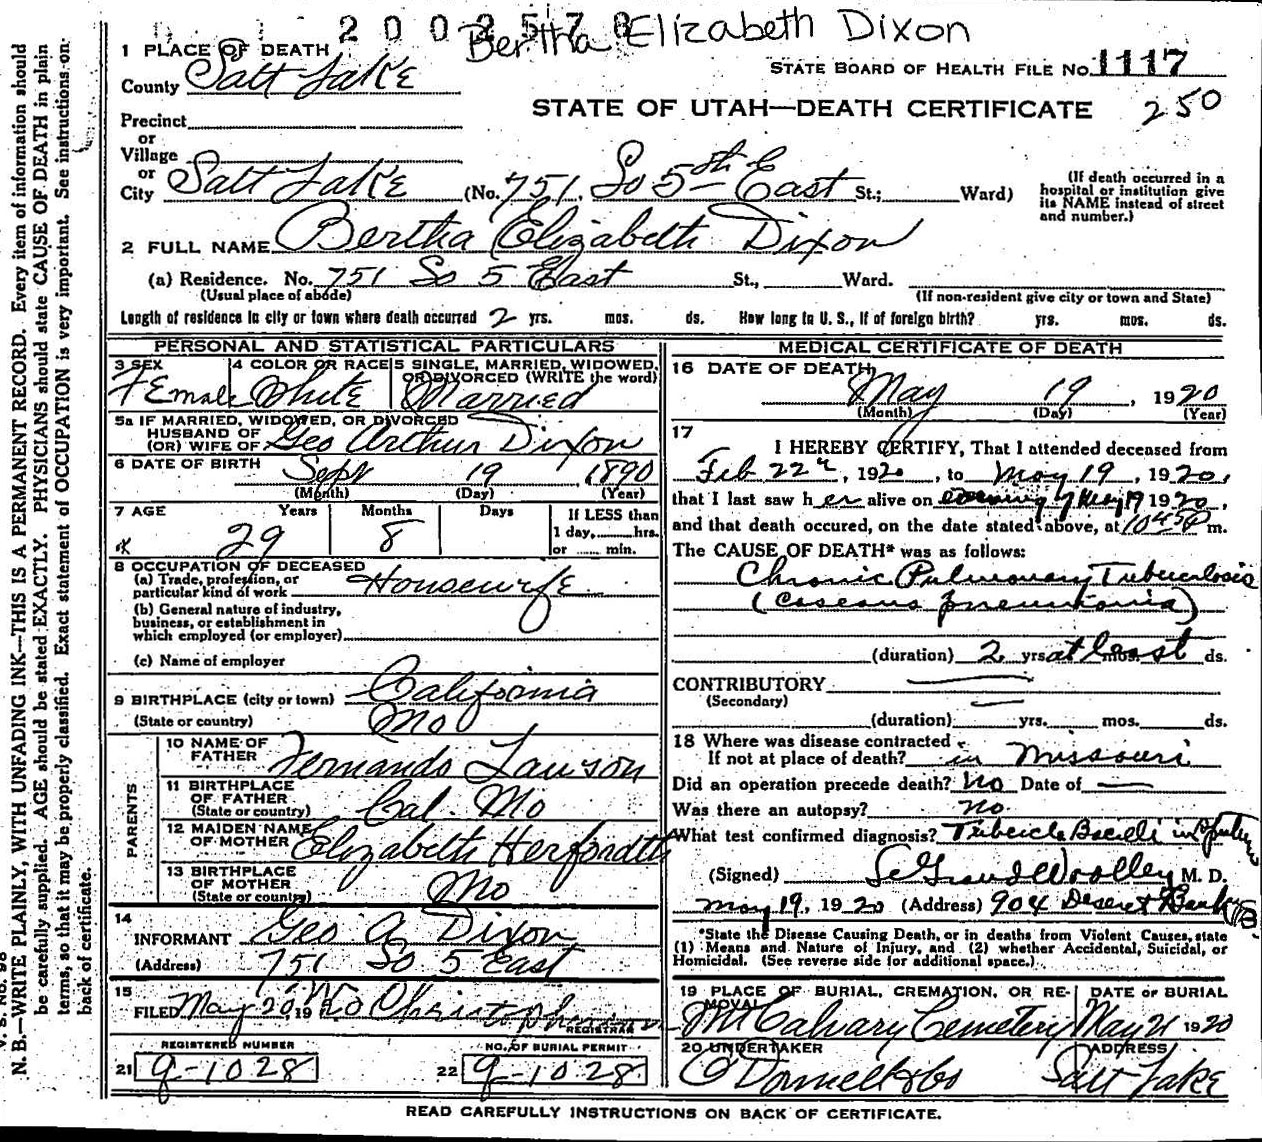 2002578
Bertha Elizabeth Dixon
1 PLACE OF DEATH
County Salt Lake
STATE BOARD OF HEALTH FILE No. 1117
STATE OF UTAH—DEATH CERTIFICATE 250
Precinct
or
Village
or
City Salt Lake (No. 751 So 5th East St.; Ward)
(If death occurred in a hospital or institution give its NAME instead of street and number.)
2 FULL NAME Bertha Elizabeth Dixon
(a) Residence. No. 751 So 5 East St., Ward.
(Usual place of abode) (If non-resident give city or town and State)
Length of residence in city or town where death occurred 2 yrs. mos. ds. How long in U. S., if of foreign birth? yrs. mos. ds.
PERSONAL AND STATISTICAL PARTICULARS
3 SEX Female
4 COLOR OR RACE White
5 SINGLE, MARRIED, WIDOWED, OR DIVORCED (WRITE the word) Married
5a IF MARRIED, WIDOWED, OR DIVORCED
HUSBAND OF
(OR) WIFE OF Geo Arthur Dixon
6 DATE OF BIRTH Sept 19 1890
(Month) (Day) (Year)
7 AGE Years Months Days If LESS than
29 8 1 day, hrs.
or min.
8 OCCUPATION OF DECEASED
(a) Trade, profession, or
particular kind of work Housewife
(b) General nature of industry,
business, or establishment in
which employed (or employer)
(c) Name of employer
9 BIRTHPLACE (city or town) California
(State or country) Mo
PARENTS
10 NAME OF
FATHER Fernando Lawson
11 BIRTHPLACE
OF FATHER
(State or country) Cal. Mo
12 MAIDEN NAME
OF MOTHER Elizabeth Herfordth
13 BIRTHPLACE
OF MOTHER
(State or country) Mo
14
INFORMANT Geo A Dixon
(Address) 751 So 5 East
15
FILED May 20, 1920
REGISTRAR
REGISTERED NUMBER
21 9-1028
NO. OF BURIAL PERMIT
22 9-1028
MEDICAL CERTIFICATE OF DEATH
16 DATE OF DEATH
May 19, 1920
(Month) (Day) (Year)
17
I HEREBY CERTIFY, That I attended deceased from
Feb 22, 1920, to May 19, 1920,
that I last saw her alive on evening of May 19 1920,
and that death occured, on the date stated above, at 10 45 P m.
The CAUSE OF DEATH* was as follows:
Chronic Pulmonary Tuberculosis
(Caseous pneumonia)
(duration) 2 yrs at least mos. ds.
CONTRIBUTORY
(Secondary)
(duration) yrs. mos. ds.
18 Where was disease contracted
If not at place of death? in Missouri
Did an operation precede death? No Date of —
Was there an autopsy? no.
What test confirmed diagnosis? Tubercle Bacilli in Sputum
(Signed) LeGrand Woolley M. D.
May 19, 1920 (Address) 904 Deseret Bank
*State the Disease Causing Death, or in deaths from Violent Causes, state
(1) Means and Nature of Injury, and (2) whether Accidental, Suicidal, or
Homicidal. (See reverse side for additional space.)
19 PLACE OF BURIAL, CREMATION, OR REMOVAL DATE OF BURIAL
Mt Calvary Cemetery May 21 1920
20 UNDERTAKER ADDRESS
O'Donnell & Co Salt Lake
READ CAREFULLY INSTRUCTIONS ON BACK OF CERTIFICATE.
V. S. No. 98
N. B.—WRITE PLAINLY, WITH UNFADING INK—THIS IS A PERMANENT RECORD. Every item of information should
be carefully supplied. AGE should be stated EXACTLY. PHYSICIANS should state CAUSE OF DEATH in plain
terms, so that it may be properly classified. Exact statement of OCCUPATION is very important. See instructions on
back of certificate.